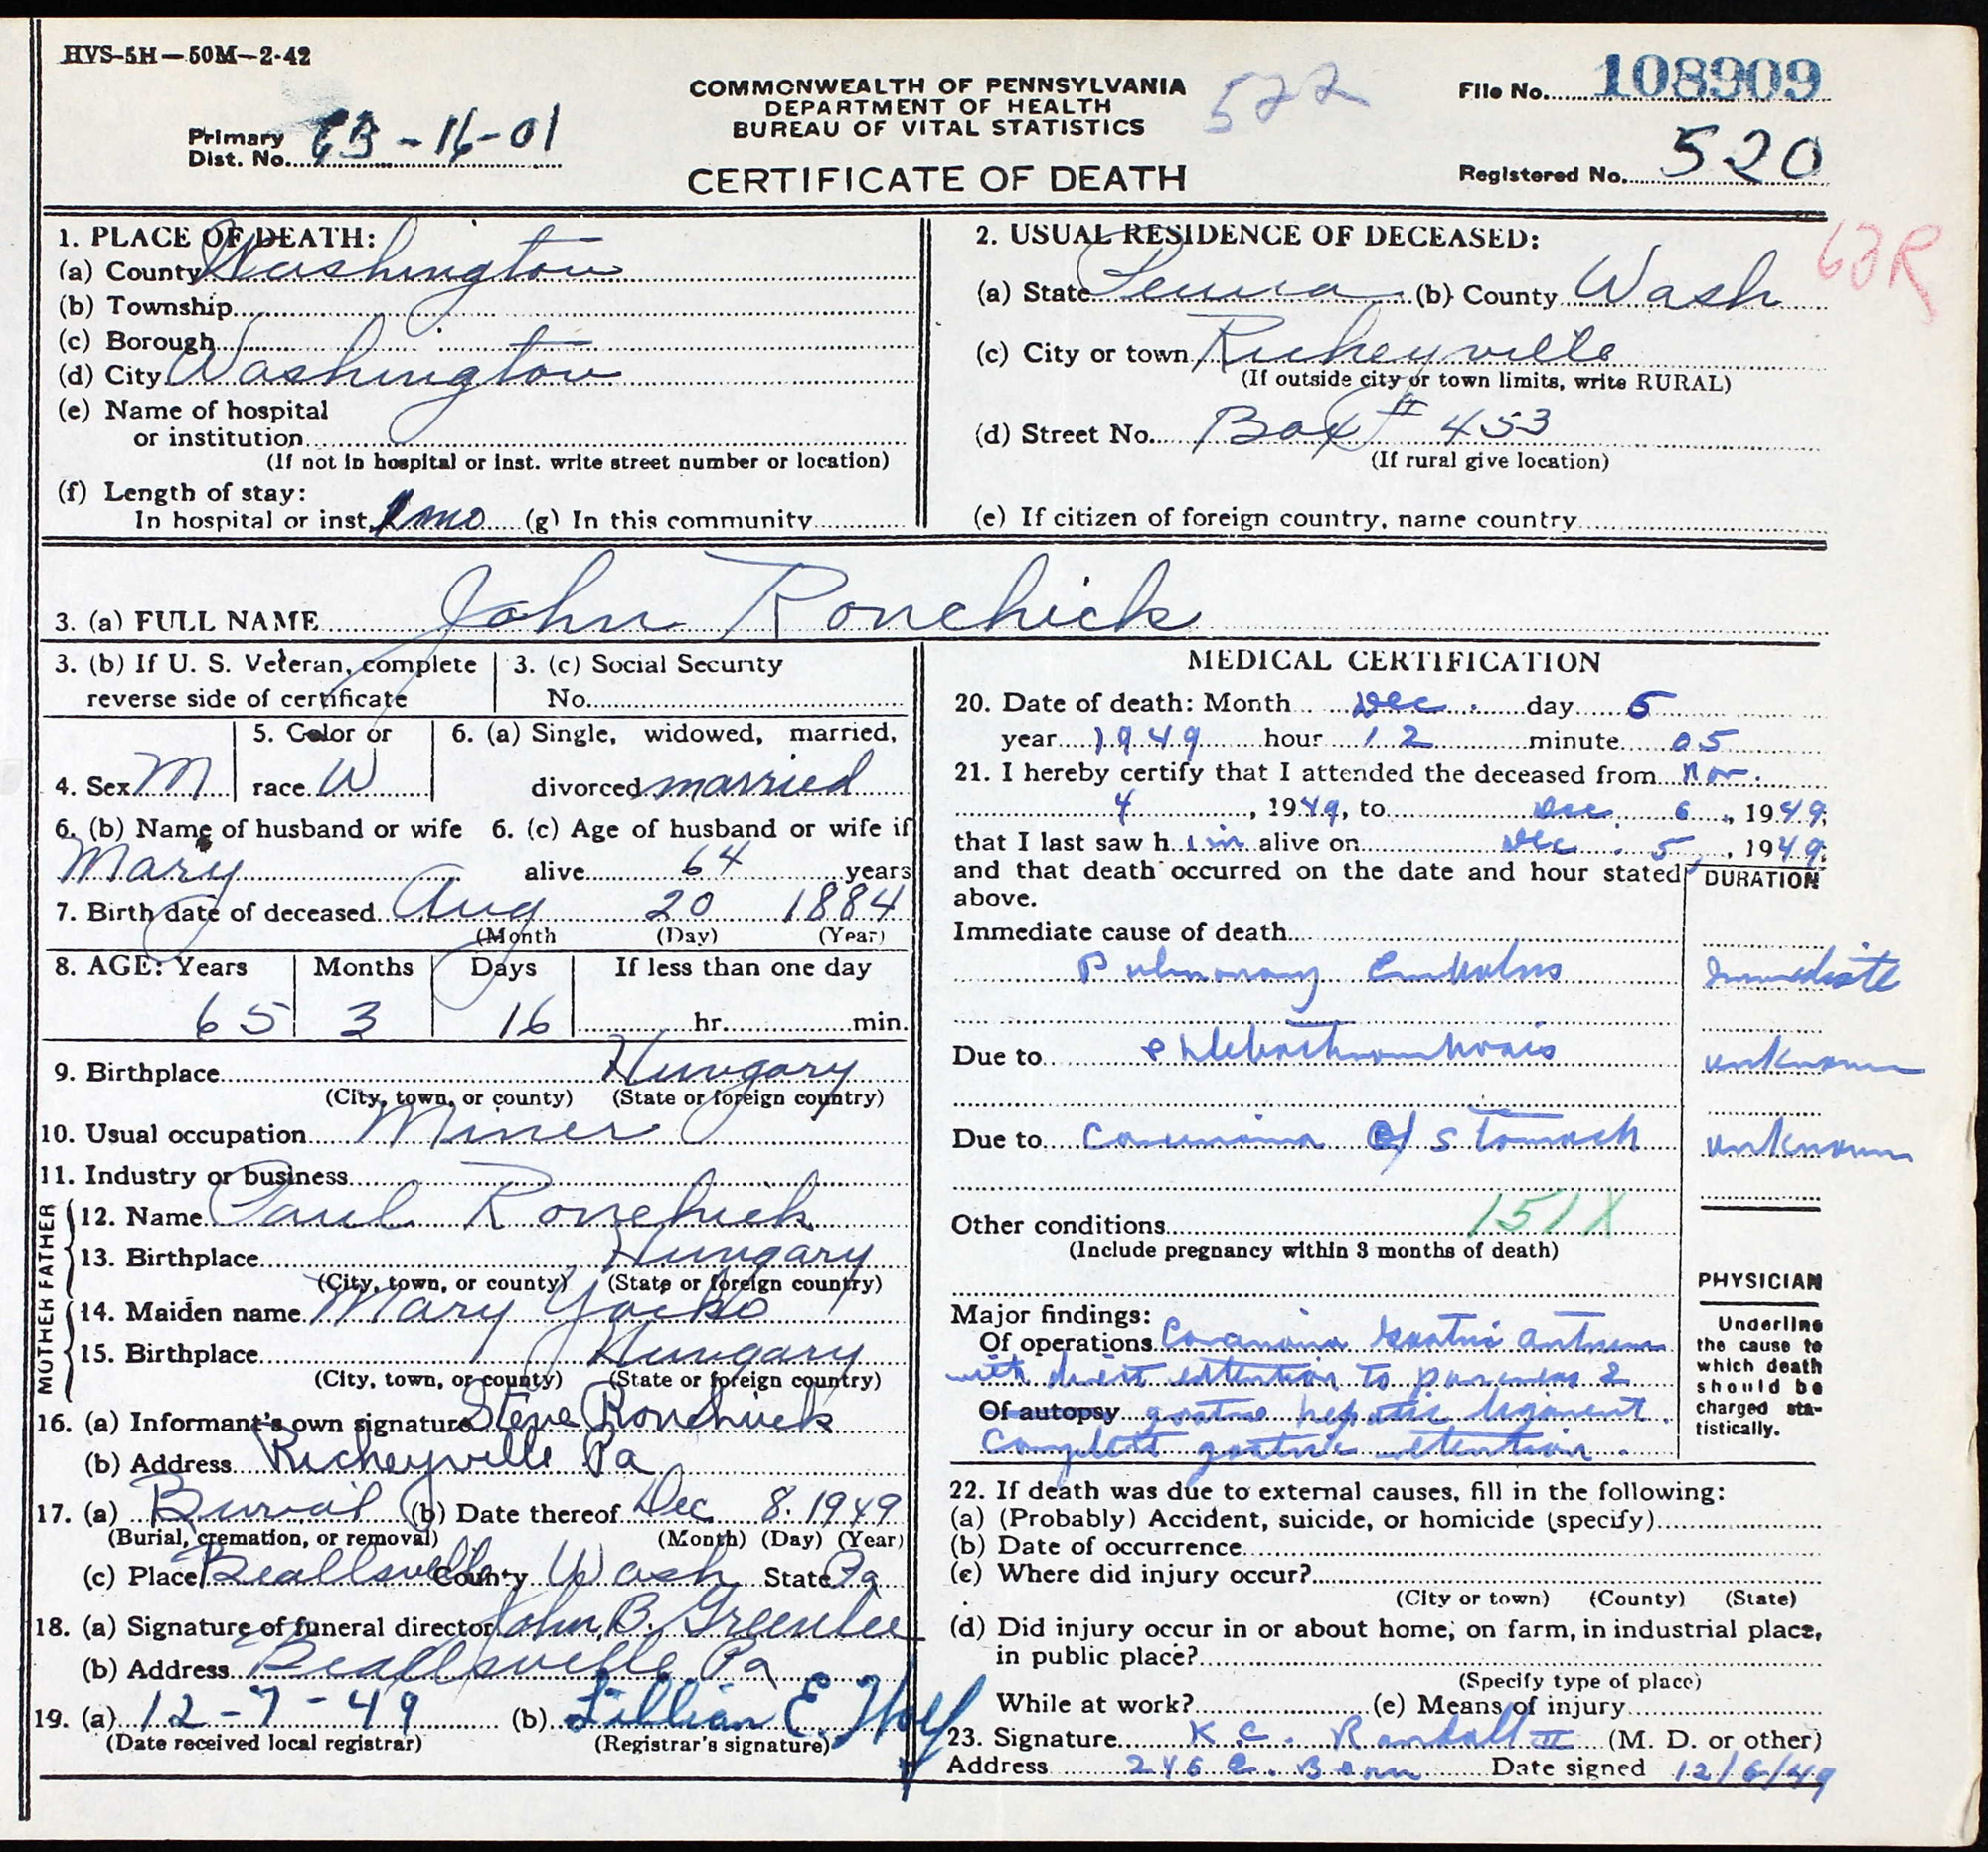 HVS-5H—50M—2-42
COMMONWEALTH OF PENNSYLVANIA
DEPARTMENT OF HEALTH
BUREAU OF VITAL STATISTICS
522
File No. 108909
Primary Dist. No. 63-16-01
CERTIFICATE OF DEATH
Registered No. 520
1. PLACE OF DEATH:
(a) County Washington
(b) Township
(c) Borough
(d) City Washington
(e) Name of hospital
or institution
(If not in hospital or inst. write street number or location)
(f) Length of stay:
In hospital or inst. 1 mo (g) In this community
2. USUAL RESIDENCE OF DECEASED:
(a) State Penna (b) County Wash
(c) City or town Richeyville
(If outside city or town limits, write RURAL)
(d) Street No. Box # 453
(If rural give location)
(e) If citizen of foreign country, name country
3. (a) FULL NAME John Ronchick
3. (b) If U. S. Veteran, complete
reverse side of certificate
3. (c) Social Security
No.
4. Sex M
5. Color or
race W
6. (a) Single, widowed, married,
divorced married
6. (b) Name of husband or wife
Mary
6. (c) Age of husband or wife if
alive 64 years
7. Birth date of deceased Aug 20 1884
(Month (Day) (Year)
8. AGE: Years Months Days If less than one day
65 3 16 hr. min.
9. Birthplace Hungary
(City, town, or county) (State or foreign country)
10. Usual occupation Miner
11. Industry or business
FATHER
12. Name Paul Ronchick
13. Birthplace Hungary
(City, town, or county) (State or foreign country)
MOTHER
14. Maiden name Mary Yacko
15. Birthplace Hungary
(City, town, or county) (State or foreign country)
16. (a) Informant's own signature Steve Ronchick
(b) Address Richeyville Pa
17. (a) Burial (b) Date thereof Dec 8. 1949
(Burial, cremation, or removal) (Month) (Day) (Year)
(c) Place Beallsville County Wash State Pa
18. (a) Signature of funeral director John B. Greenlee
(b) Address Beallsville Pa
19. (a) 12-7-49 (b) Lillian E.
(Date received local registrar) (Registrar's signature)
MEDICAL CERTIFICATION
20. Date of death: Month Dec. day 5
year 1949 hour 12 minute 05
21. I hereby certify that I attended the deceased from Nov.
4, 1949, to Dec. 6, 1949;
that I last saw h im alive on Dec. 5, 1949;
and that death occurred on the date and hour stated
above.
DURATION
Immediate cause of death
Pulmonary Embolus Immediate
Due to Phlebothrombosis unknown
Due to Carcinoma of Stomach unknown
151X
Other conditions
(Include pregnancy within 3 months of death)
Major findings:
Of operations Carcinoma Gastric antrum
with direct extention to pancreas &
Of autopsy gastro hepatic ligament.
Complete gastric retention.
PHYSICIAN
Underline
the cause to
which death
should be
charged sta-
tistically.
22. If death was due to external causes, fill in the following:
(a) (Probably) Accident, suicide, or homicide (specify)
(b) Date of occurrence
(c) Where did injury occur?
(City or town) (County) (State)
(d) Did injury occur in or about home, on farm, in industrial place,
in public place?
(Specify type of place)
While at work? (e) Means of injury
23. Signature K. C. Randall II (M. D. or other)
Address 246 E. Beau Date signed 12/6/49